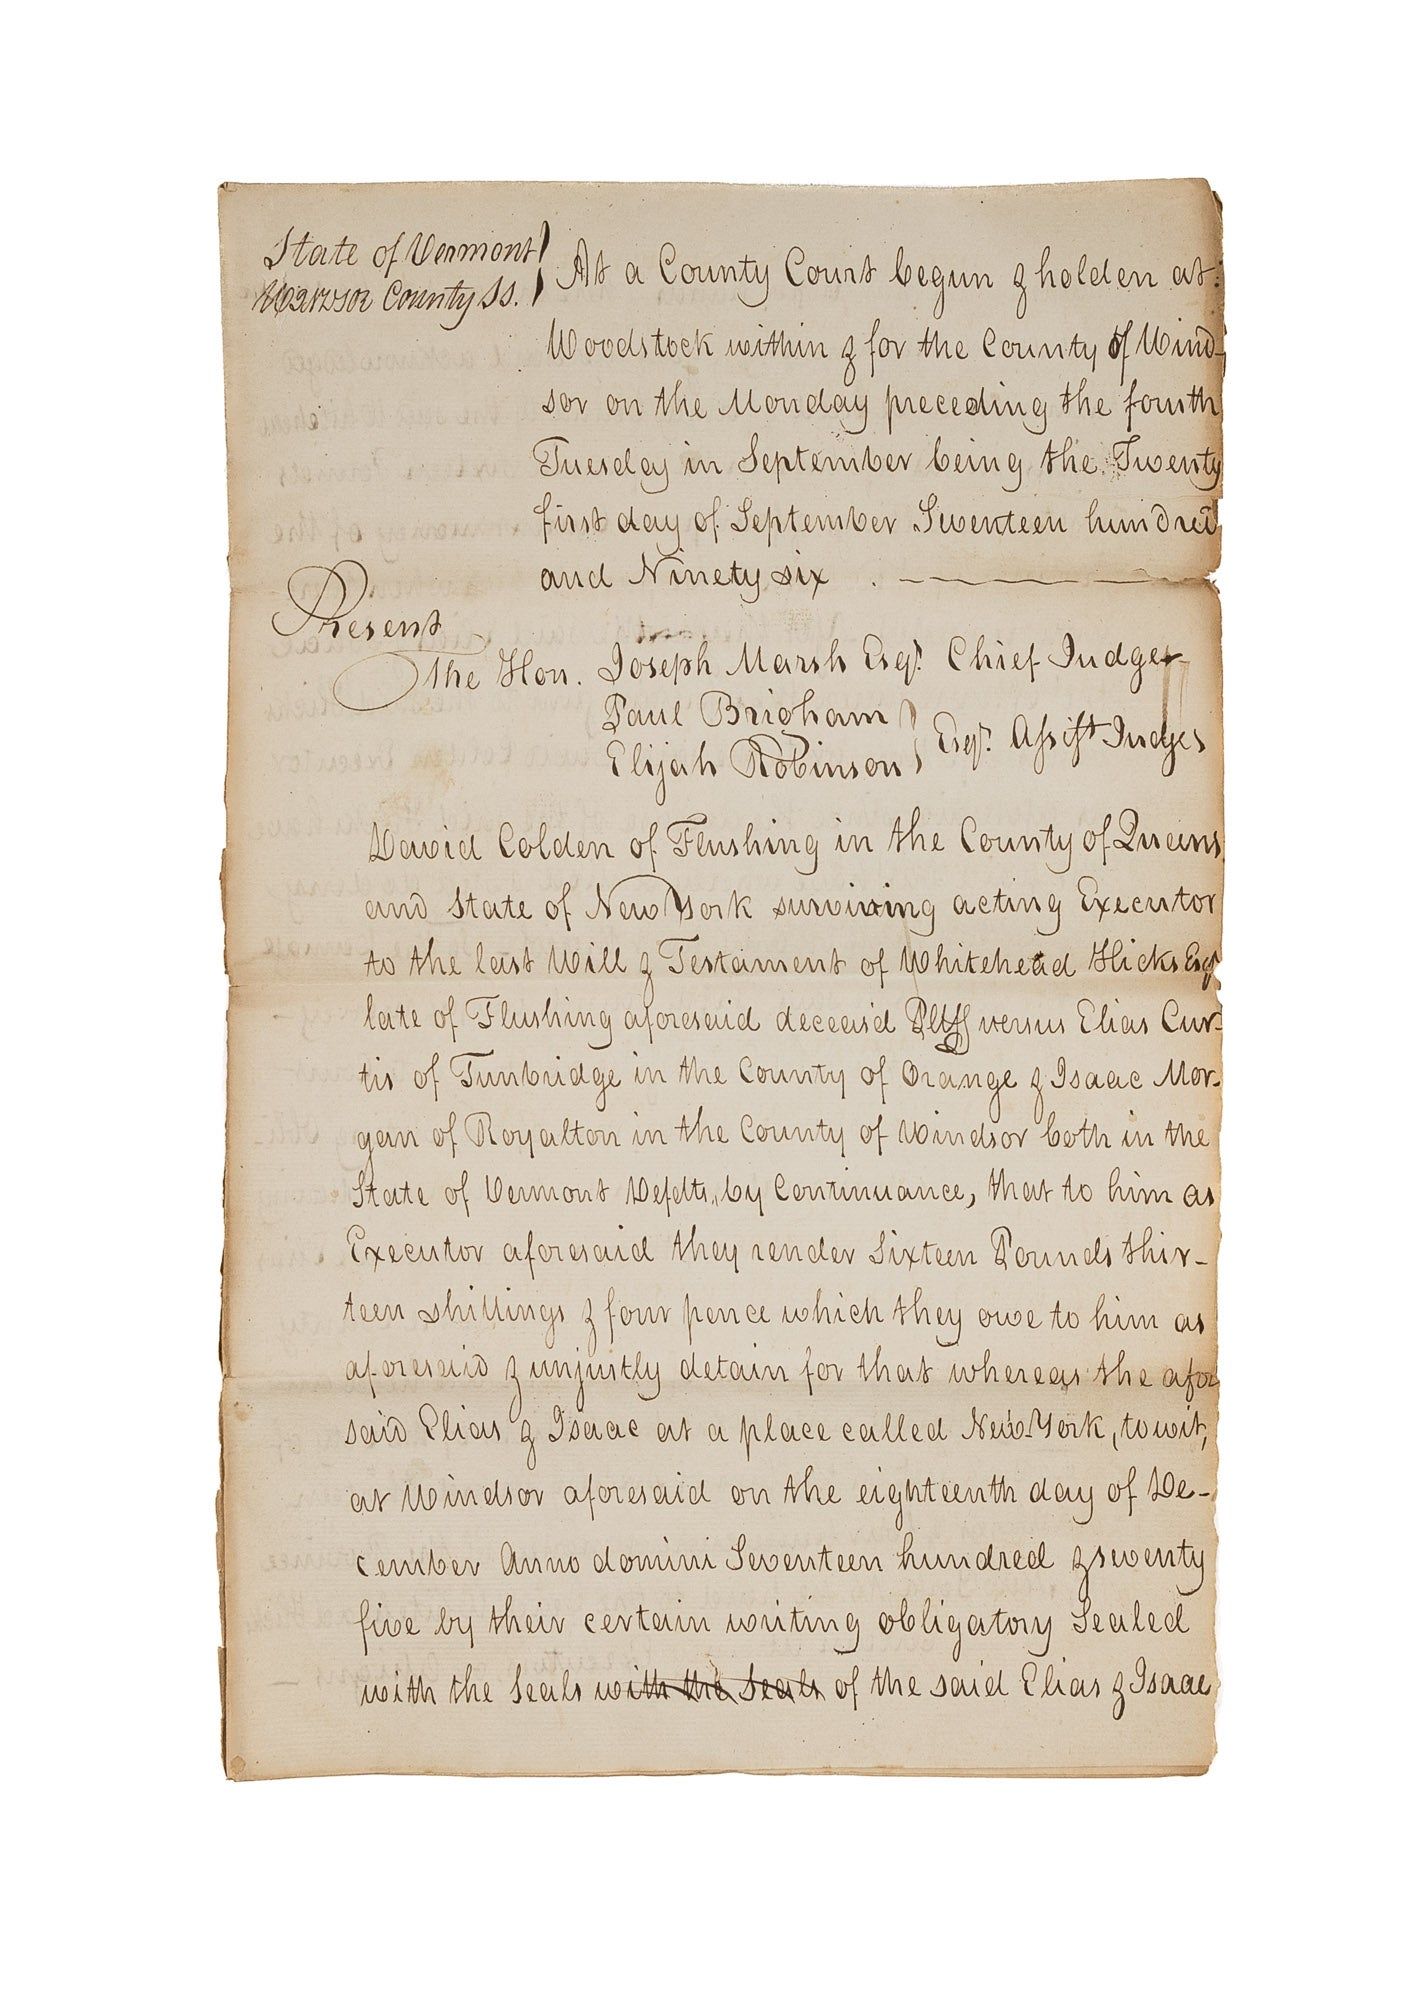 State of Vermont
Windsor County Ss.
At a County Court begun & holden at
Woodstock within & for the County of Wind-
sor on the Monday preceding the fourth
Tuesday in September being the Twenty
first day of September Seventeen hundred
and Ninety six . — — — —
Present
The Hon. Joseph Marsh Esqr. Chief Judge
Paul Brigham
Elijah Robinson
Esqr. Assist Judges
David Colden of Flushing in the County of Queens
and State of New York surviving acting Executor
to the last Will & Testament of Whitehead Hicks Esqr
late of Flushing aforesaid deceas'd Pltff versus Elias Cur-
tis of Tunbridge in the County of Orange & Isaac Mor-
gan of Royalton in the County of Windsor both in the
State of Vermont Defdts, by Continuance, that to him as
Executor aforesaid they render Sixteen Pounds thir-
teen shillings & four pence which they owe to him as
aforesaid & unjustly detain for that whereas the afore
said Elias & Isaac at a place called New-York, towit,
at Windsor aforesaid on the eighteenth day of De-
cember Anno domini Seventeen hundred & seventy
five by their certain writing obligatory Sealed
with the Seals with the Seals of the said Elias & Isaac